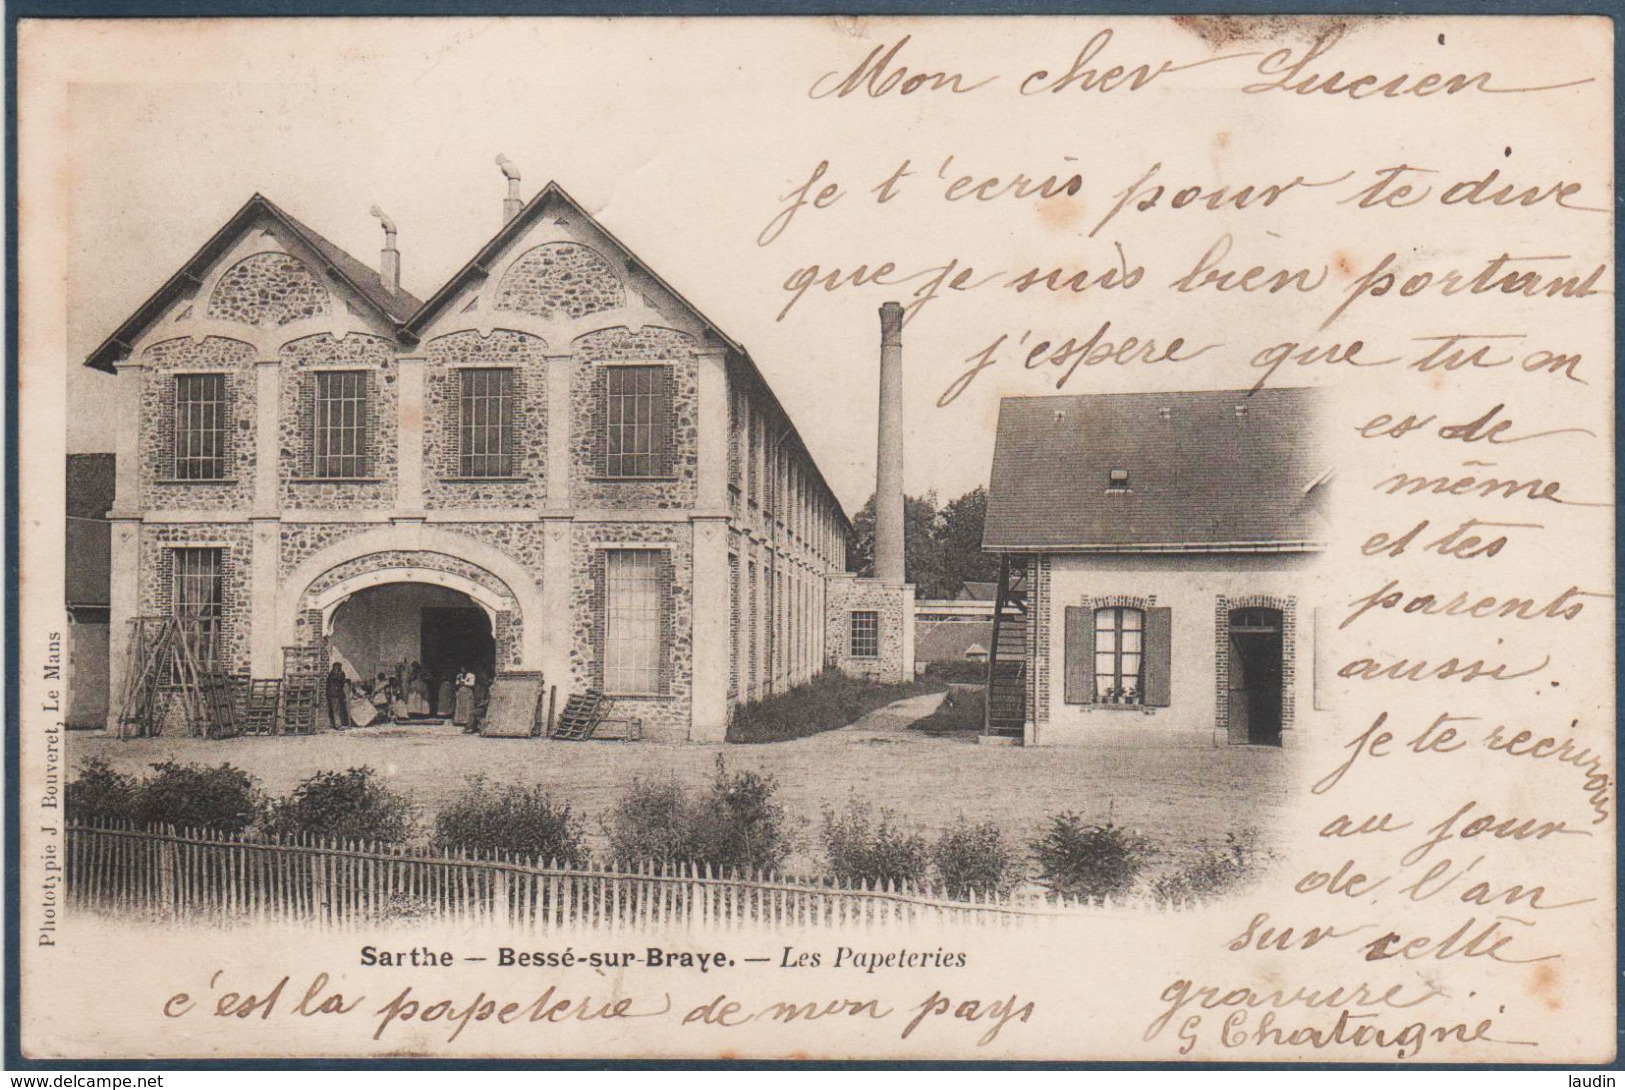 Mon cher Lucien
Je t'ecris pour te dire
que je suis bien portant
j'espere que tu en
es de
même
et tes
parents
aussi.
Je te recrirois
au jour
de l'an
sur cette
gravure.
G Chatagné
Photoypie J. Bouveret, Le Mans
Sarthe — Bessé-sur-Braye. — Les Papeteries
c'est la papeterie de mon pays
www.delcampe.net
laudin